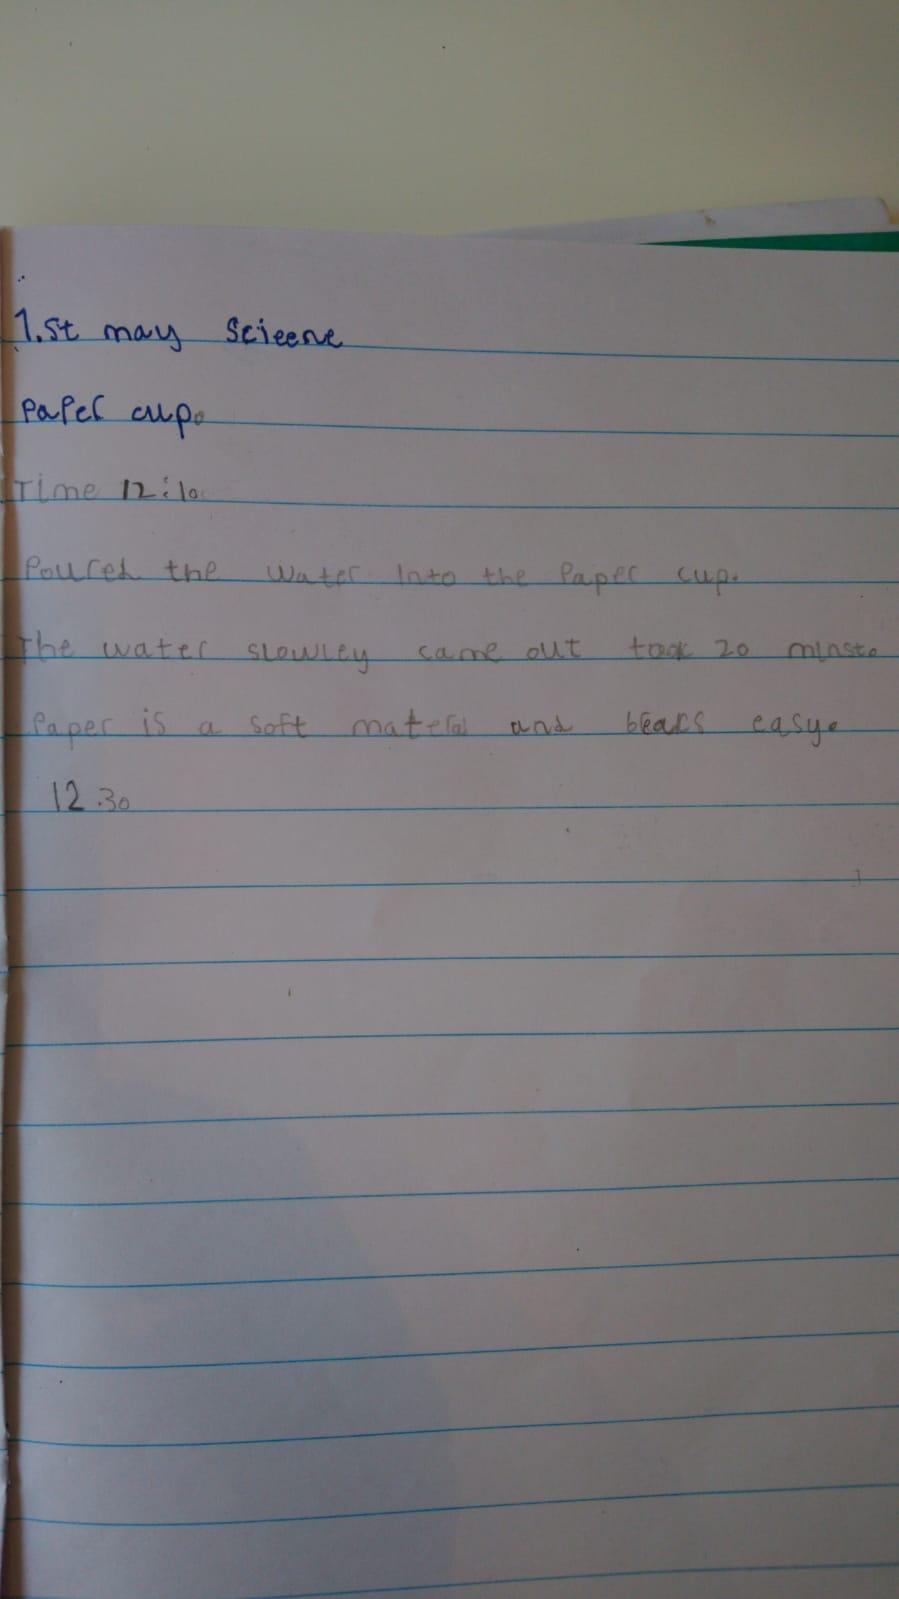 1.st may Scieene
Paper cup.
Time 12:10
Poured the water Into the Paper cup.
The water slowley came out took 20 minst.
Paper is a soft materal and bears easy.
12.30